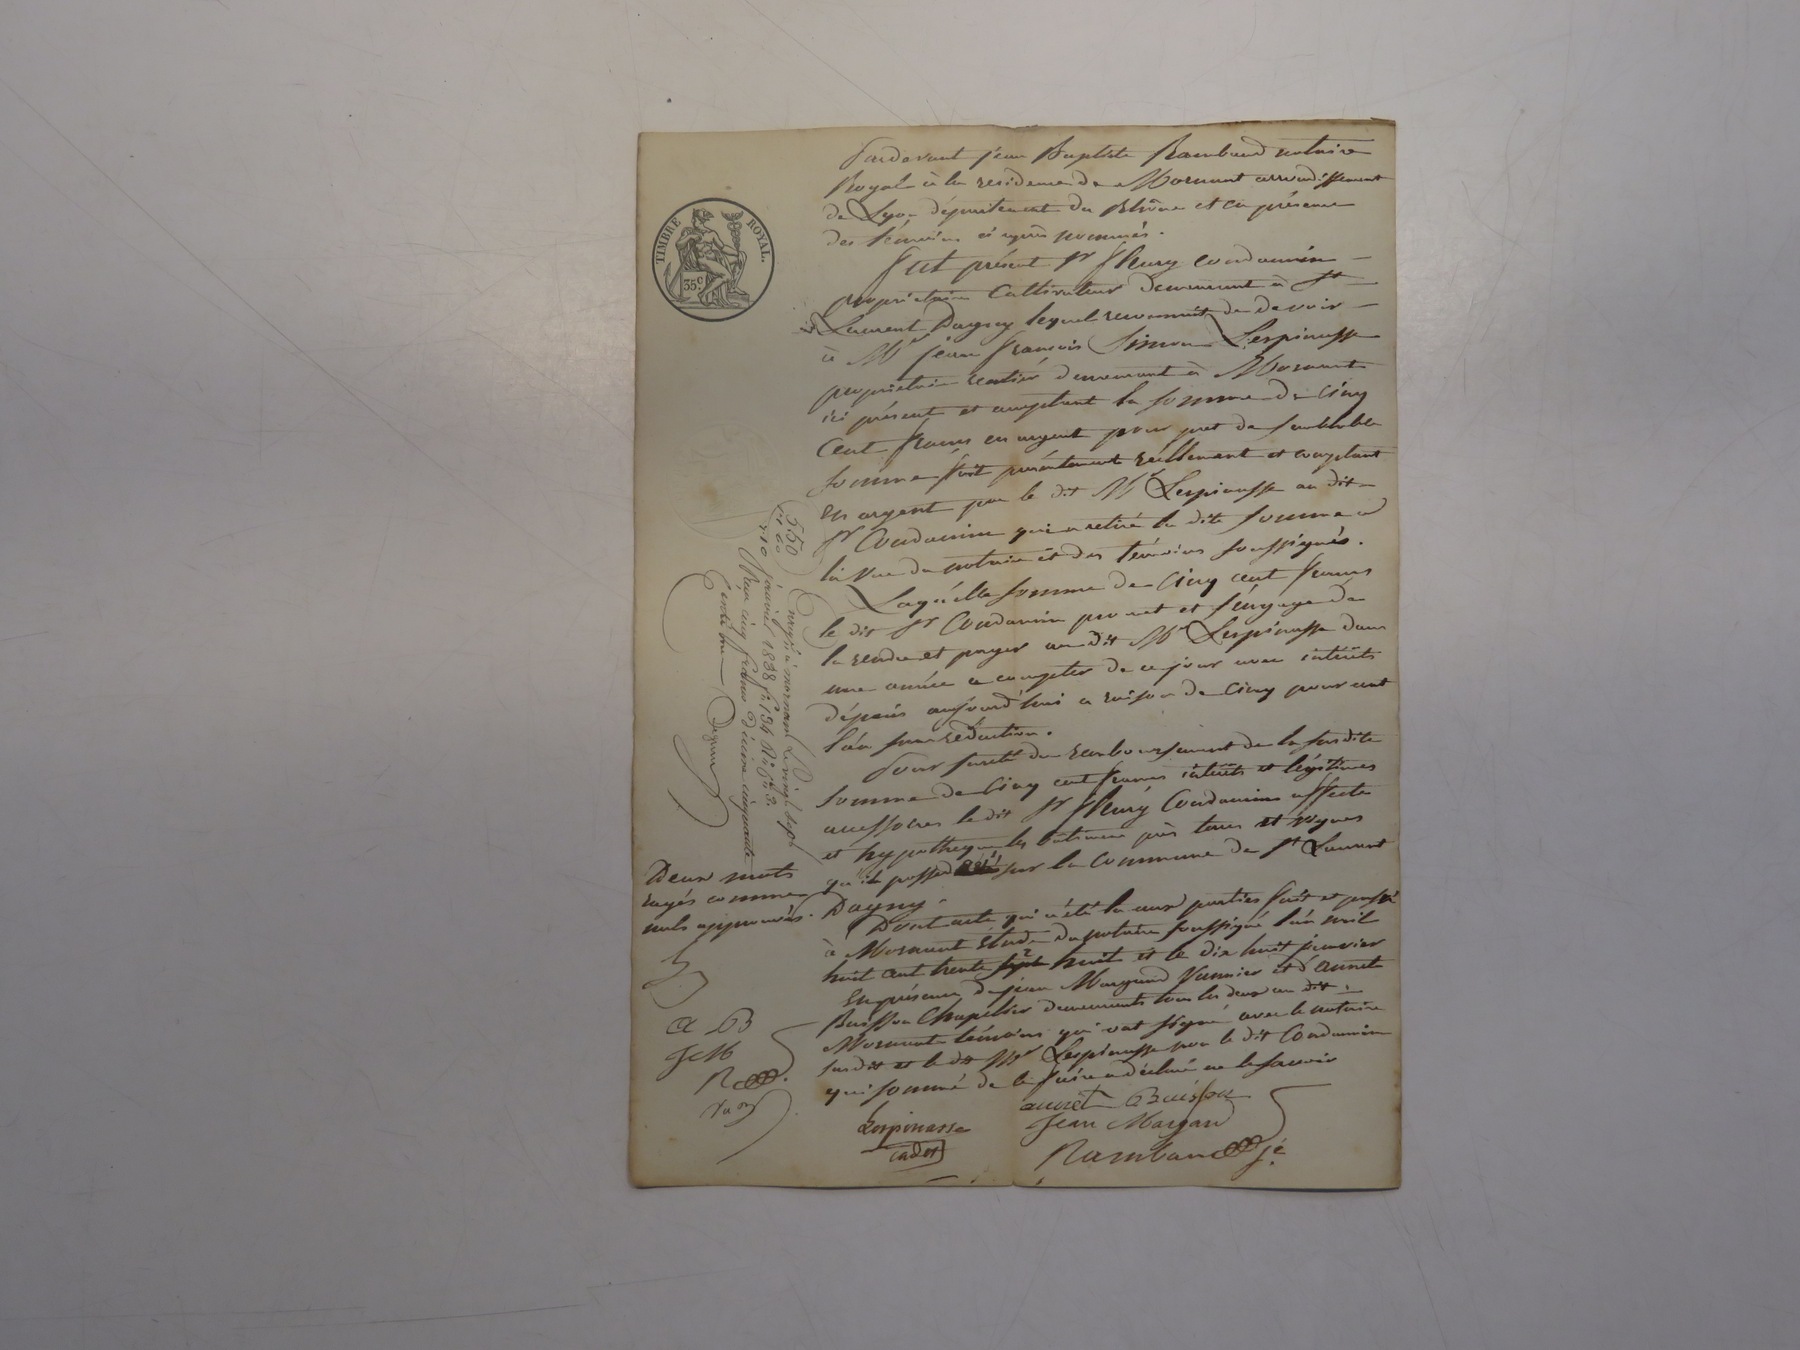 TIMBRE ROYAL.
35 c
Pardevant jean Baptiste Rambaud notaire
Royal à la residence de Mornant arrondissement
de Lyon département du Rhône et en présence
des témoins ci après nommés.
Fut présent Sr fleury Condamin
propriétaire Cultivateur demeurant à St
Laurent Dagny lequel reconnait de devoir
à Mr jean françois Simon Lespinasse
propriétaire rentier demeurant à Mornant
ici présent et acceptant la somme de Cinq
Cent francs en argent pour pret de semblable
somme fait présentement réellement et comptant
en argent par le dit Mr Lespinasse au dit
Sr Condamin qui a retiré la dite somme a
la vue du notaire et des témoins soussignés.
Laquelle somme de Cinq cent francs
le dit Sr Condamin promet et s'engage de
la rendre et payer au dit Mr Lespinasse dans
une année a compter de ce jour avec intérêts
dépuis aujourd'hui a raison de Cinq pour cent
l'an sans réduction.
Pour sureté du remboursement de la susdite
somme de Cinq cent francs intérêts et légitimes
accessoires le dit Sr fleury Condamin affecte
et hypotheque les bâtiments près terres et vignes
qu'il possede sur la Commune de St Laurent
Dagny.
Dont acte qui a été lu aux parties fait et passé
à Mornant étude du notaire soussigné l'an mil
huit cent trente sept huit et le dix huit janvier
En présence de jean Margand Vannier et d'annet
Buisson Chapelier demeurants tous les deux au dit
Mornant témoins qui ont signé avec le notaire
susdit et le dit Mr Lespinasse non le dit Condamin
qui sommé de le faire a déclaré ne le savoir
annet Buisson
Lespinasse
cadet
Jean Margand
Rambaud
5.50
60
Enregé à mornant Le vingt sept
janvier 1838 fo 134 Ro Cse 3.
Reçu cinq francs Décime cinquante
Centimes
Deux mots
rayés comme
nuls approuvés.
a B
JeM
R